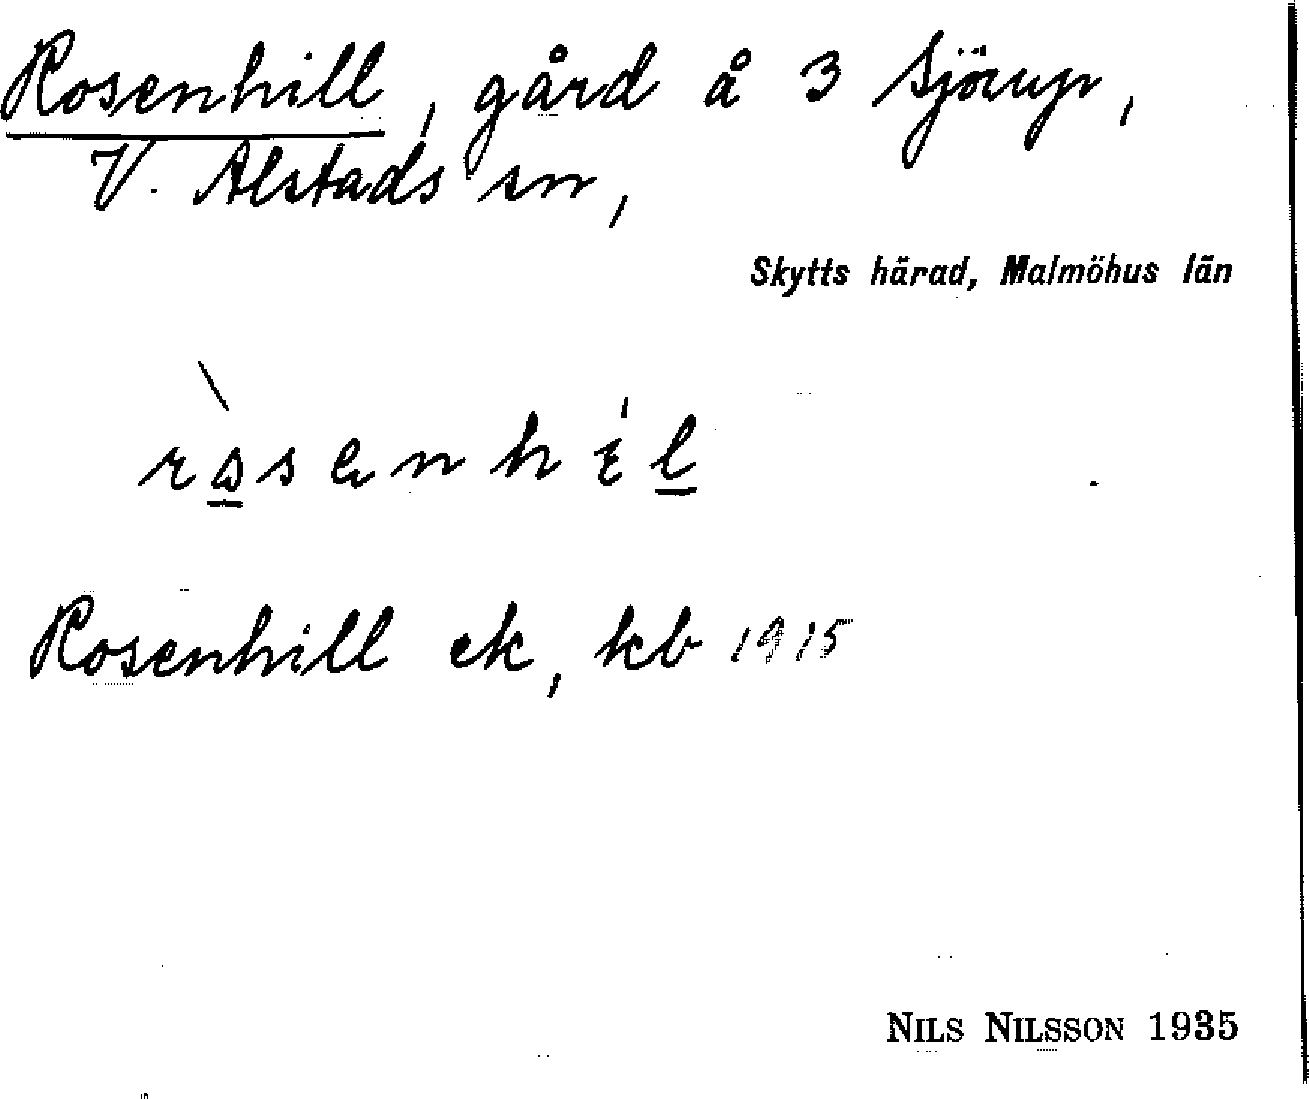 Rosenhill, gård å 3 Sjörup,
V. Alstads sn,
Skytts härad, Malmöhus län
Rosenhill ek, kb 1915
NILS NILSSON 1935